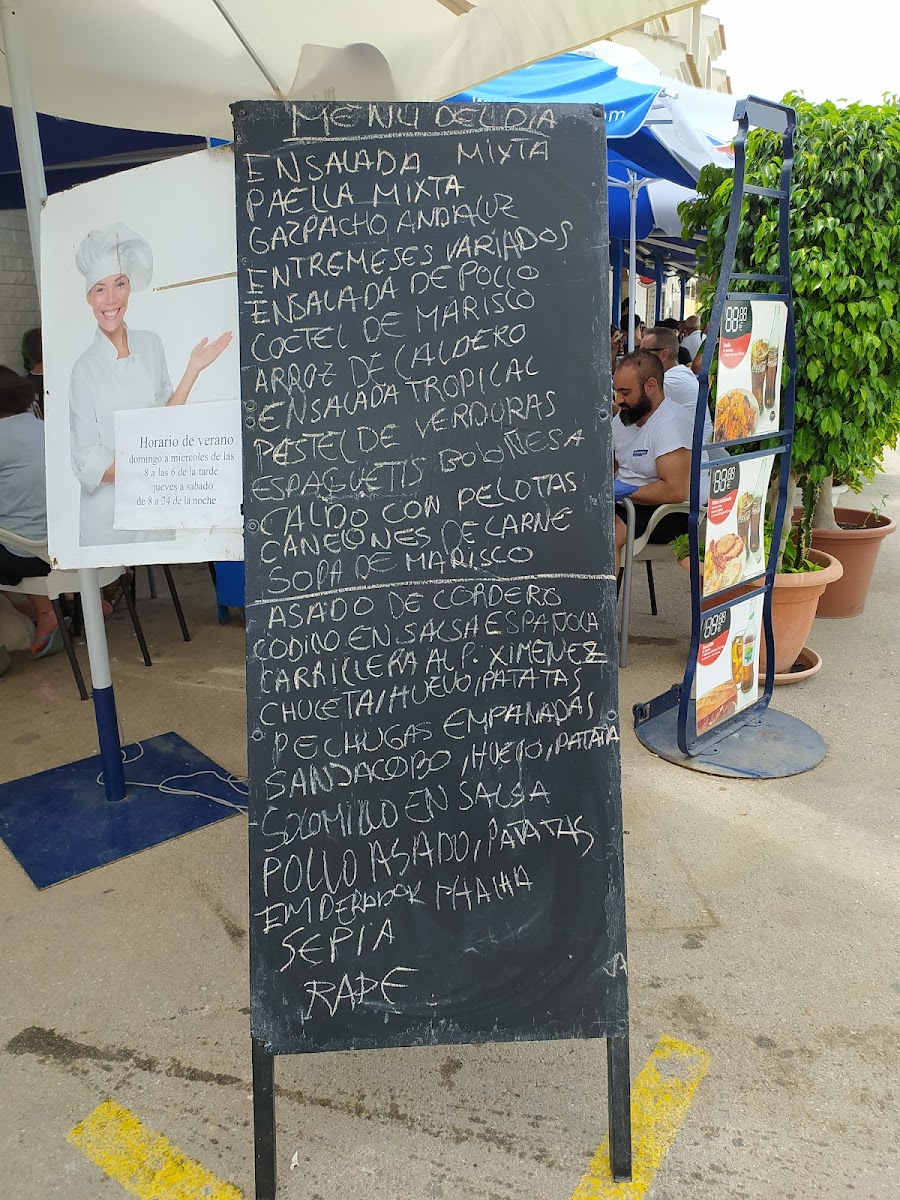 MENU DEL DIA
ENSALADA MIXTA
PAELLA MIXTA
GAZPACHO ANDALUZ
ENTREMESES VARIADOS
ENSALADA DE POLLO
COCTEL DE MARISCO
ARROZ DE CALDERO
ENSALADA TROPICAL
PASTEL DE VERDURAS
ESPAGUETIS BOLOÑESA
CALDO CON PELOTAS
CANELONES DE CARNE
SOPA DE MARISCO
ASADO DE CORDERO
CODILLO EN SALSA ESPAÑOLA
CARRILLERA AL P. XIMENEZ
CHULETA/HUEVO/PATATAS
PECHUGAS EMPANADAS
SANDACOBO, HUEVO, PATATA
SOLOMILLO EN SALSA
POLLO ASADO, PATATAS
EMPERADOR PLANCHA
SEPIA
RAPE
Horario de verano
domingo a miercoles de las
8 a las 6 de la tarde
jueves a sabado
de 8 a 24 de la noche
.com